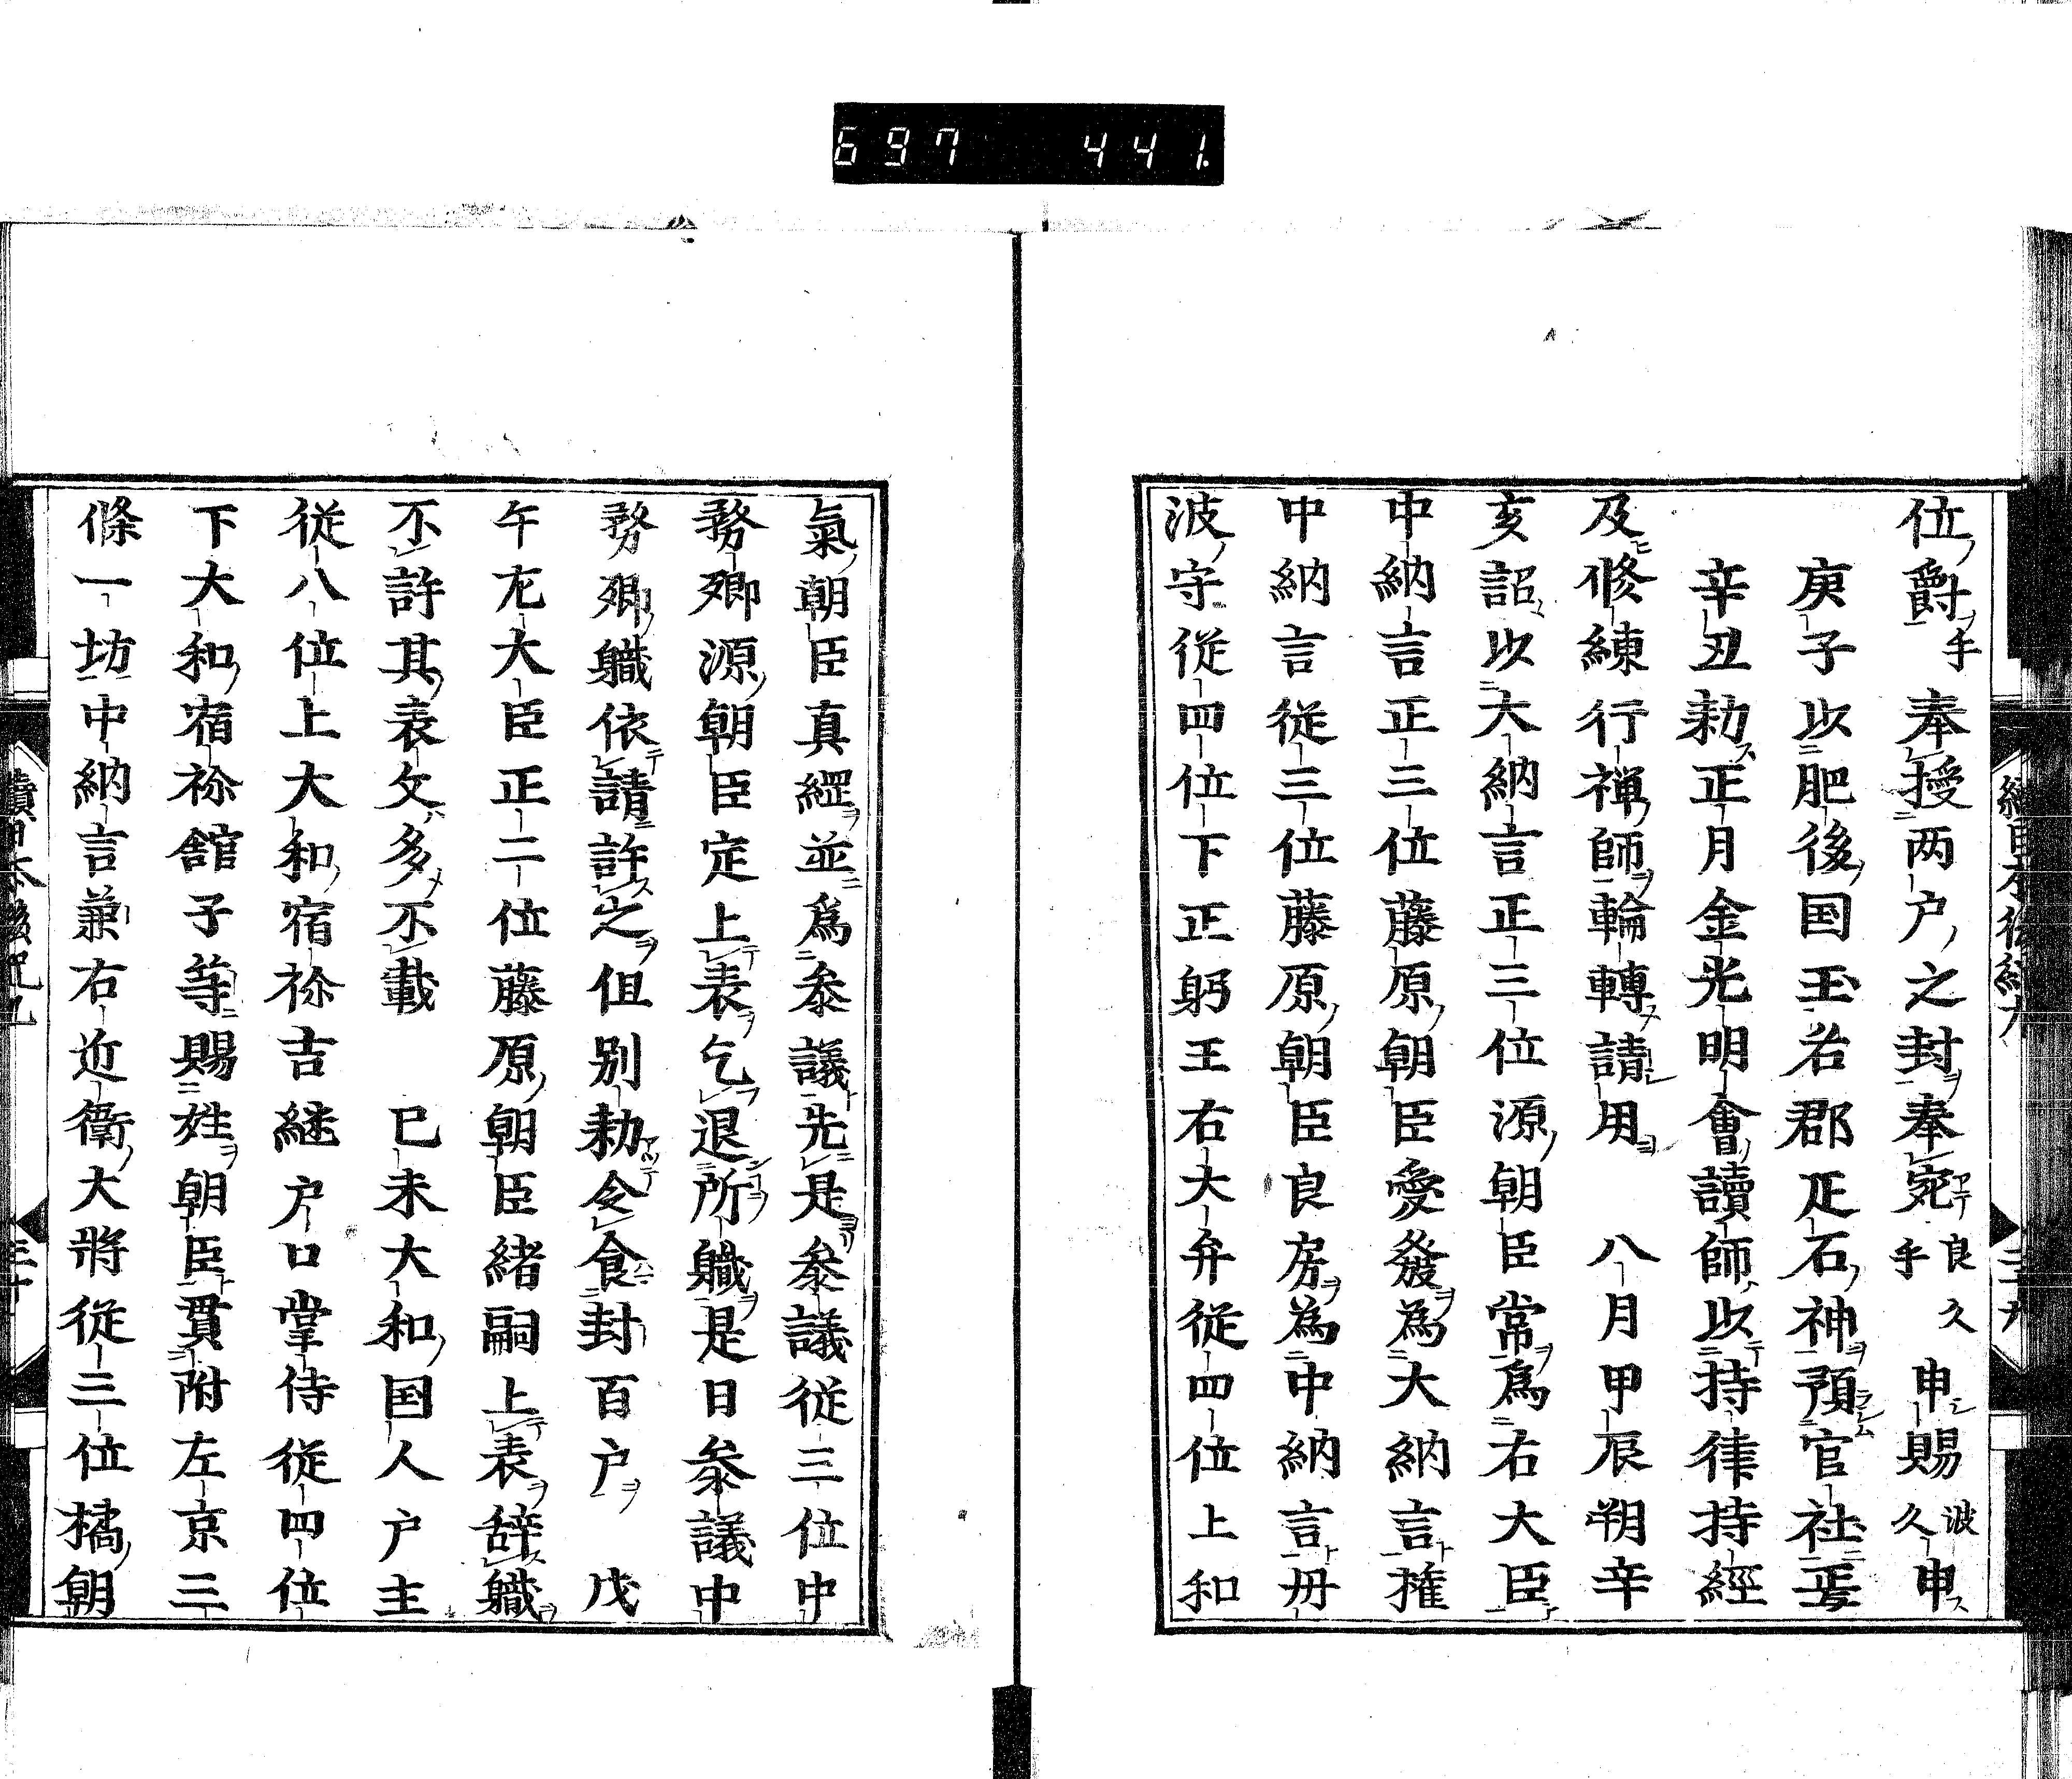 697 441.
位爵手奉授两户之封奉宛良久申賜波久申
庚子以肥後国玉名郡疋石神預官社焉
辛丑勅正月金光明會讀師以持律持經
及修練行禅師輪轉請用 八月甲辰朔辛
亥詔以大納言正三位源朝臣常為右大臣
中納言正三位藤原朝臣愛發為大納言權
中納言從三位藤原朝臣良房為中納言丹
波守從四位下正躬王右大弁從四位上和
氣朝臣真綱並為参議先是参議從三位中
務卿源朝臣定上表乞退所職是日参議中
務卿職依請許之但别勅令食封百户 戊
午左大臣正二位藤原朝臣緒嗣上表辞職
不許其表文多不載 已未大和国人户主
從八位上大和宿祢吉継户口掌侍從四位
下大和宿祢舘子等賜姓朝臣貫附左京三
條一坊中納言兼右近衛大將從三位橘朝